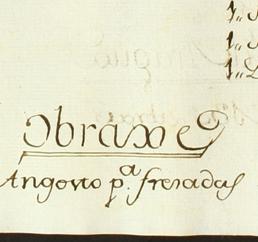 1,,
1,,
1,,
Obraxe
Angosto p.ª fresadas